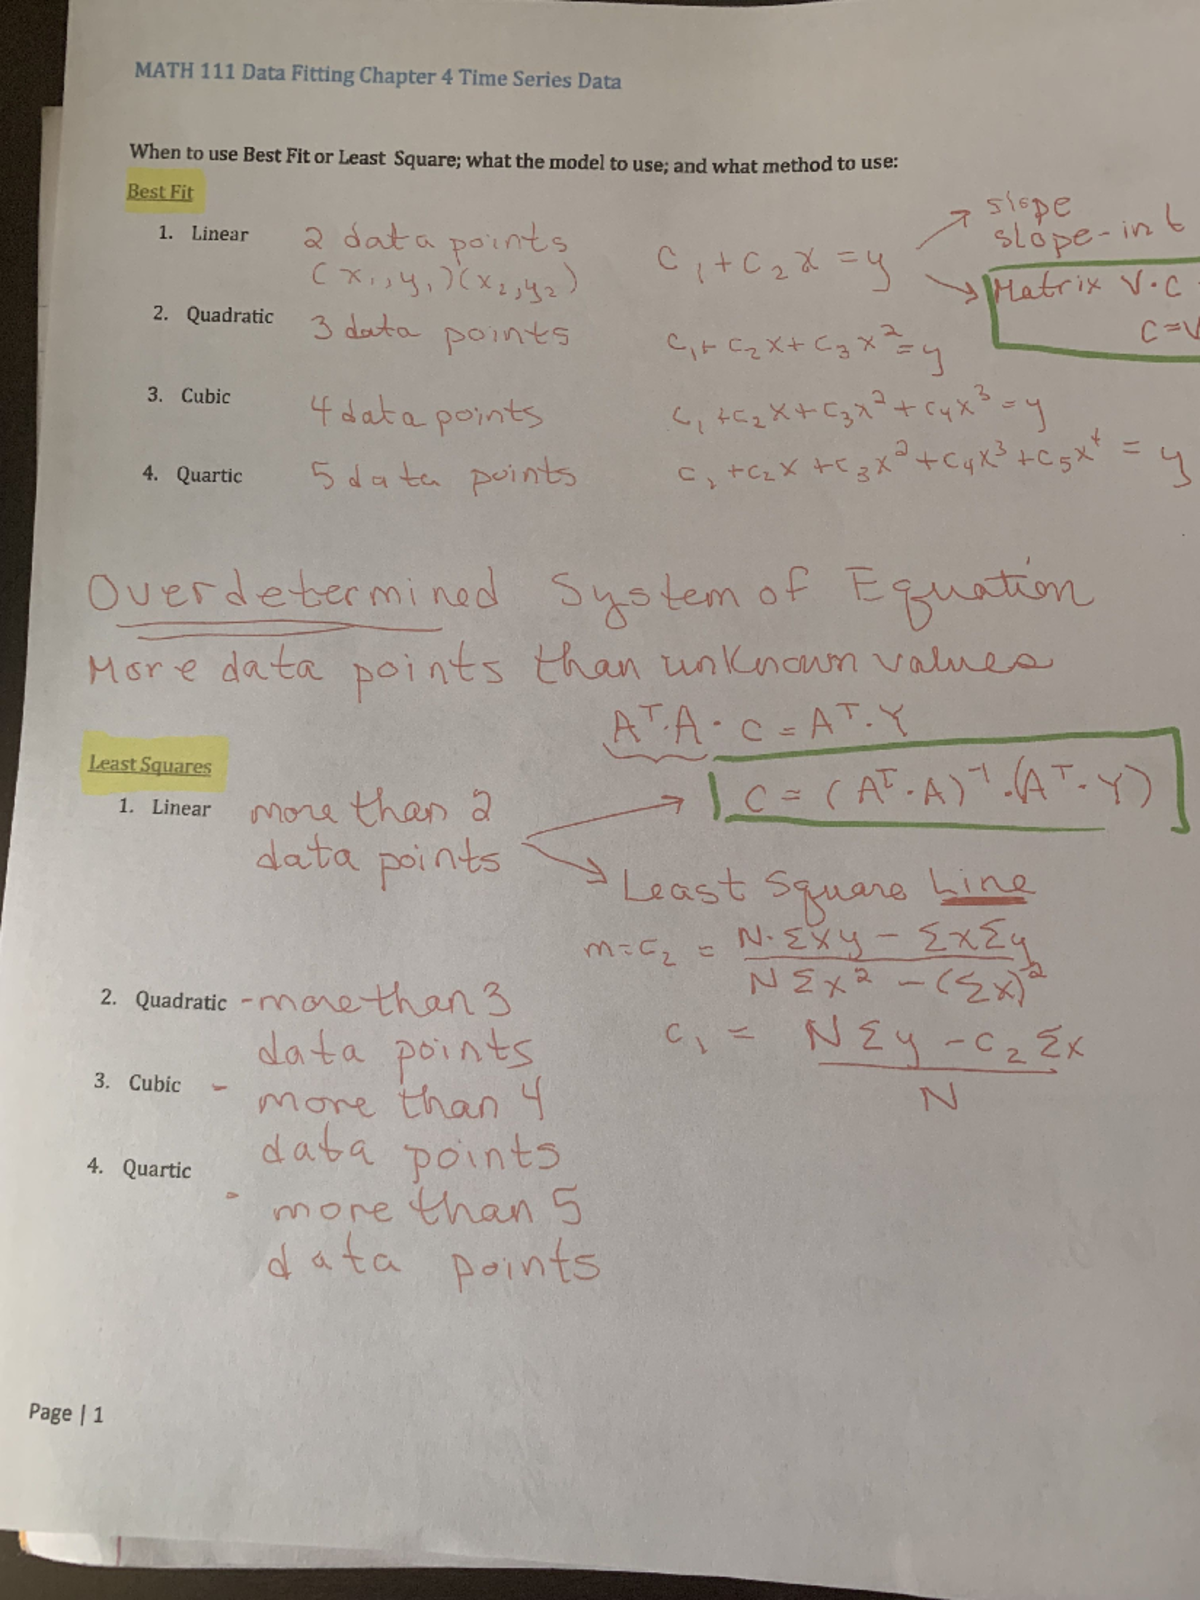 MATH 111 Data Fitting Chapter 4 Time Series Data
When to use Best Fit or Least Square; what the model to use; and what method to use:
Best Fit
1. Linear 2 data points C₁+C₂x=y slope
(x₁,y₁)(x₂,y₂) slope-int
Matrix V·C
C=V
2. Quadratic 3 data points C₁+C₂x+C₃x²=y
3. Cubic 4 data points C₁+C₂x+C₃x²+C₄x³=y
4. Quartic 5 data points C₁+C₂x+C₃x²+C₄x³+C₅x⁴=y
Overdetermined System of Equation
More data points than unknown values
Aᵀ·A·C=Aᵀ·Y
Least Squares
C=(Aᵀ·A)⁻¹·(Aᵀ·Y)
1. Linear more than 2
data points
Least Square Line
m=C₂ = N·Σxy - ΣxΣy
NΣx² - (Σx)²
2. Quadratic - more than 3
data points
C₁ = NΣy - C₂Σx
N
3. Cubic - more than 4
data points
4. Quartic - more than 5
data points
Page | 1